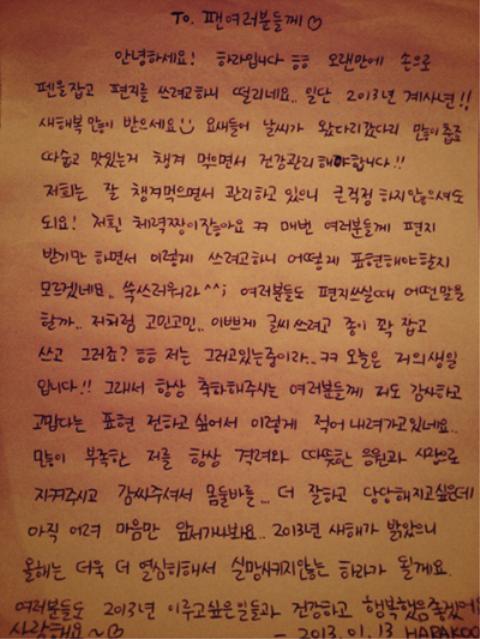 To. 팬여러분들께♡
안녕하세요! 하라입니다 ㅎㅎ 오랜만에 손으로
펜을잡고 편지를 쓰려고하니 떨리네요.. 일단 2013년 계사년!!
새해복 많이 받으세요 요새들어 날씨가 왔다리갔다리 많이춥죠
따습고 맛있는거 챙겨 먹으면서 건강관리해야합니다!!
저희는 잘 챙겨먹으면서 관리하고 있으니 큰걱정 하지않으셔도
되요! 저흰 체력짱이잖아요 ㅋㅋ 매번 여러분들께 편지
받기만 하면서 이렇게 쓰려고하니 어떻게 표현해야할지
모르겠네요.. 쑥쓰러워라^^; 여러분들도 편지쓰실때 어떤말을
할까.. 저처럼 고민고민.. 이쁘게 글씨쓰려고 종이 꽉 잡고
쓰고 그러죠? ㅎㅎ 저는 그러고있는중이라..ㅋㅋ 오늘은 저의생일
입니다!! 그래서 항상 축하해주시는 여러분들께 저도 감사하고
고맙다는 표현 전하고싶어서 이렇게 적어내려가고있네요..
많이 부족한 저를 항상 격려와 따뜻한 응원과 사랑으로
지켜주시고 감싸주셔서 몸둘바를... 더 잘하고 당당해지고싶은데
아직 어려 마음만 앞서가나봐요.. 2013년 새해가 밝았으니
올해는 더욱 더 열심히해서 실망시키지않는 하라가 될게요.
여러분들도 2013년 이루고싶은일들과 건강하고 행복했음좋겠어요
사랑해요~♡ - 2013.01.13 HARAKOO